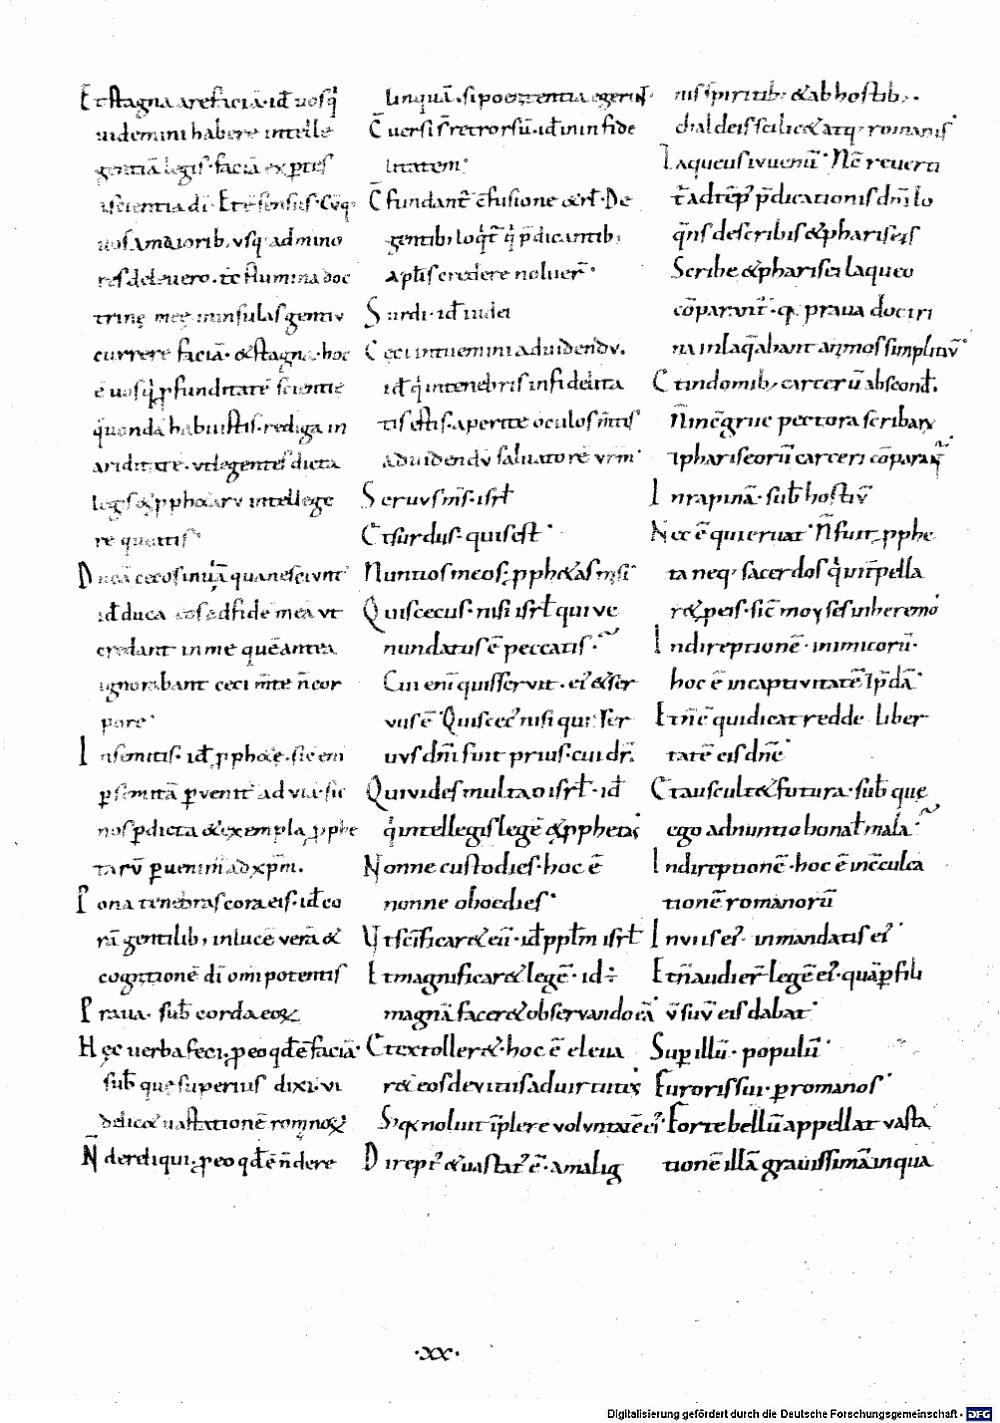 Et stagna arefaciā · id̄ uos q̄
uidemini habere intelle
gentiā legis · faciā exꝑtes
scientia dī · Et ē sensus ·
uos amaiorib; vsq; admino
res deleuero · & flumina doc
trinę meę ininsulas gentiv
currere faciā · & stagna · hoc
ē uos q̄ ꝓfunditatē scientię
q̄ondā habuistis · rediga in
ariditatē · vt legentes dicta
legis & ꝓphetarv intellege
re queatis ·
Ducā cecos inuiā quā nesciunt
id̄ ducā eos adfidē meā vt
credant in me quē antea
ignorabant ceci m̄te n̄ cor
pore ·
In semitis · id̄ ꝓphetę · sic eni
ꝑ semitā ꝑvenit̄ ad viā · sic
nos ꝑ dicta & exempla ꝓphe
tarv̄ ꝑuenim̄ ad xp̄m.
Pona tenebras corā eis · id̄ co
rā gentilib; inlucē verā &
cogitionē dī omipotentis
Praua · sub̄ corda eoꝝ
Hęc uerba feci · ꝑeo qd̄ ē faciā ·
sub̄ quę superius dixi · vi
delic& uastationē romnoꝝ
N̄ derdiqui · ꝑeo qd̄ ē n̄ dere
linquā · si poenitentiā egerint ·
C̄uersi s̄ retrorsū · id̄ in infide
litatem ·
C̄fundant̄ c̄fusione & rł · De
gentib; loqit̄ q̄ p̄dicantib;
aplis credere noluer̄ ·
Surdi · id̄ iudei
Ceci intuemini ad uidendv.
id̄ q̄ in tenebris infidelita
tis estis · aperite oculos m̄tis
ad uidendv saluatorē vrm̄
Seruvs m̄s · isrł
Et surdus · quis est ·
Nuntios meos; ꝓph&as misi
Quis cecus · nisi isrł qui ve
nundatus ē peccatis ·
Cui eni quis servit · ei' & ser
vus ē · Quis cec' nisi qui ser
uvs dn̄i fuit prius · cui dr̄.
Qui vides multa o isrł · id̄
q̄ intellegis legē & ꝓphetas
Nonne custodies · hoc ē
nonne oboedies ·
Vt sc̄ificar& eū · id̄ ppłm isrł
Et magnificar& legē · id ÷
magnā facer& observando eā
Et extoller& · hoc ē eleua
r& eos de vitiis ad uirtutes
S; qa noluit īplere volvntatē ei'
Dirept' & uastat' ē · a malig
nis spiritib; & ab hostib; ·
chaldeis scilic& atq; romanis
Laqueus ivvenū · Nc̄ reverti
t̄ ad tēp' p̄dicationis dn̄i lo
q̄ns de scribis & phariseis
Scribę & pharisei laqueo
cōparant̄ · qa praua doctri
na inlaq̄abant animos simplitiv̄
Et in domib; carcerū abscond̄.
N̄ inc̄grue pectora scribarv
& phariseorū carceri cōparant̄
In rapinā · sub̄ hostiv̄
Nec ē qui eruat · N̄ fuit ꝓphe
ta neq; sacerdos q̄ int̄pella
r& ꝑ eis · sic̄ moyses in heremo
In direptionē · inimicorū ·
hoc ē in captivitatē & p̄dā ·
Et n̄ ē qui dicat redde · liber
tatē eis dn̄e ·
Et auscult& futura · sub̄ quę
ego adnuntio bona ł mala ·
In direptionē · hoc ē inc̄culca
tionē romanorū
In viis ei' · in mandatis ei' ·
Et n̄ audier̄ legē ei' · quā ꝑ fili
v̄ suv̄ eis dabat ·
Super illū · populū ·
Furoris sui · ꝑ romanos ·
Forte bellū appellat vasta
tionē illā grauissimā in qua
· xx ·
Digitalisierung gefördert durch die Deutsche Forschungsgemeinschaft · DFG